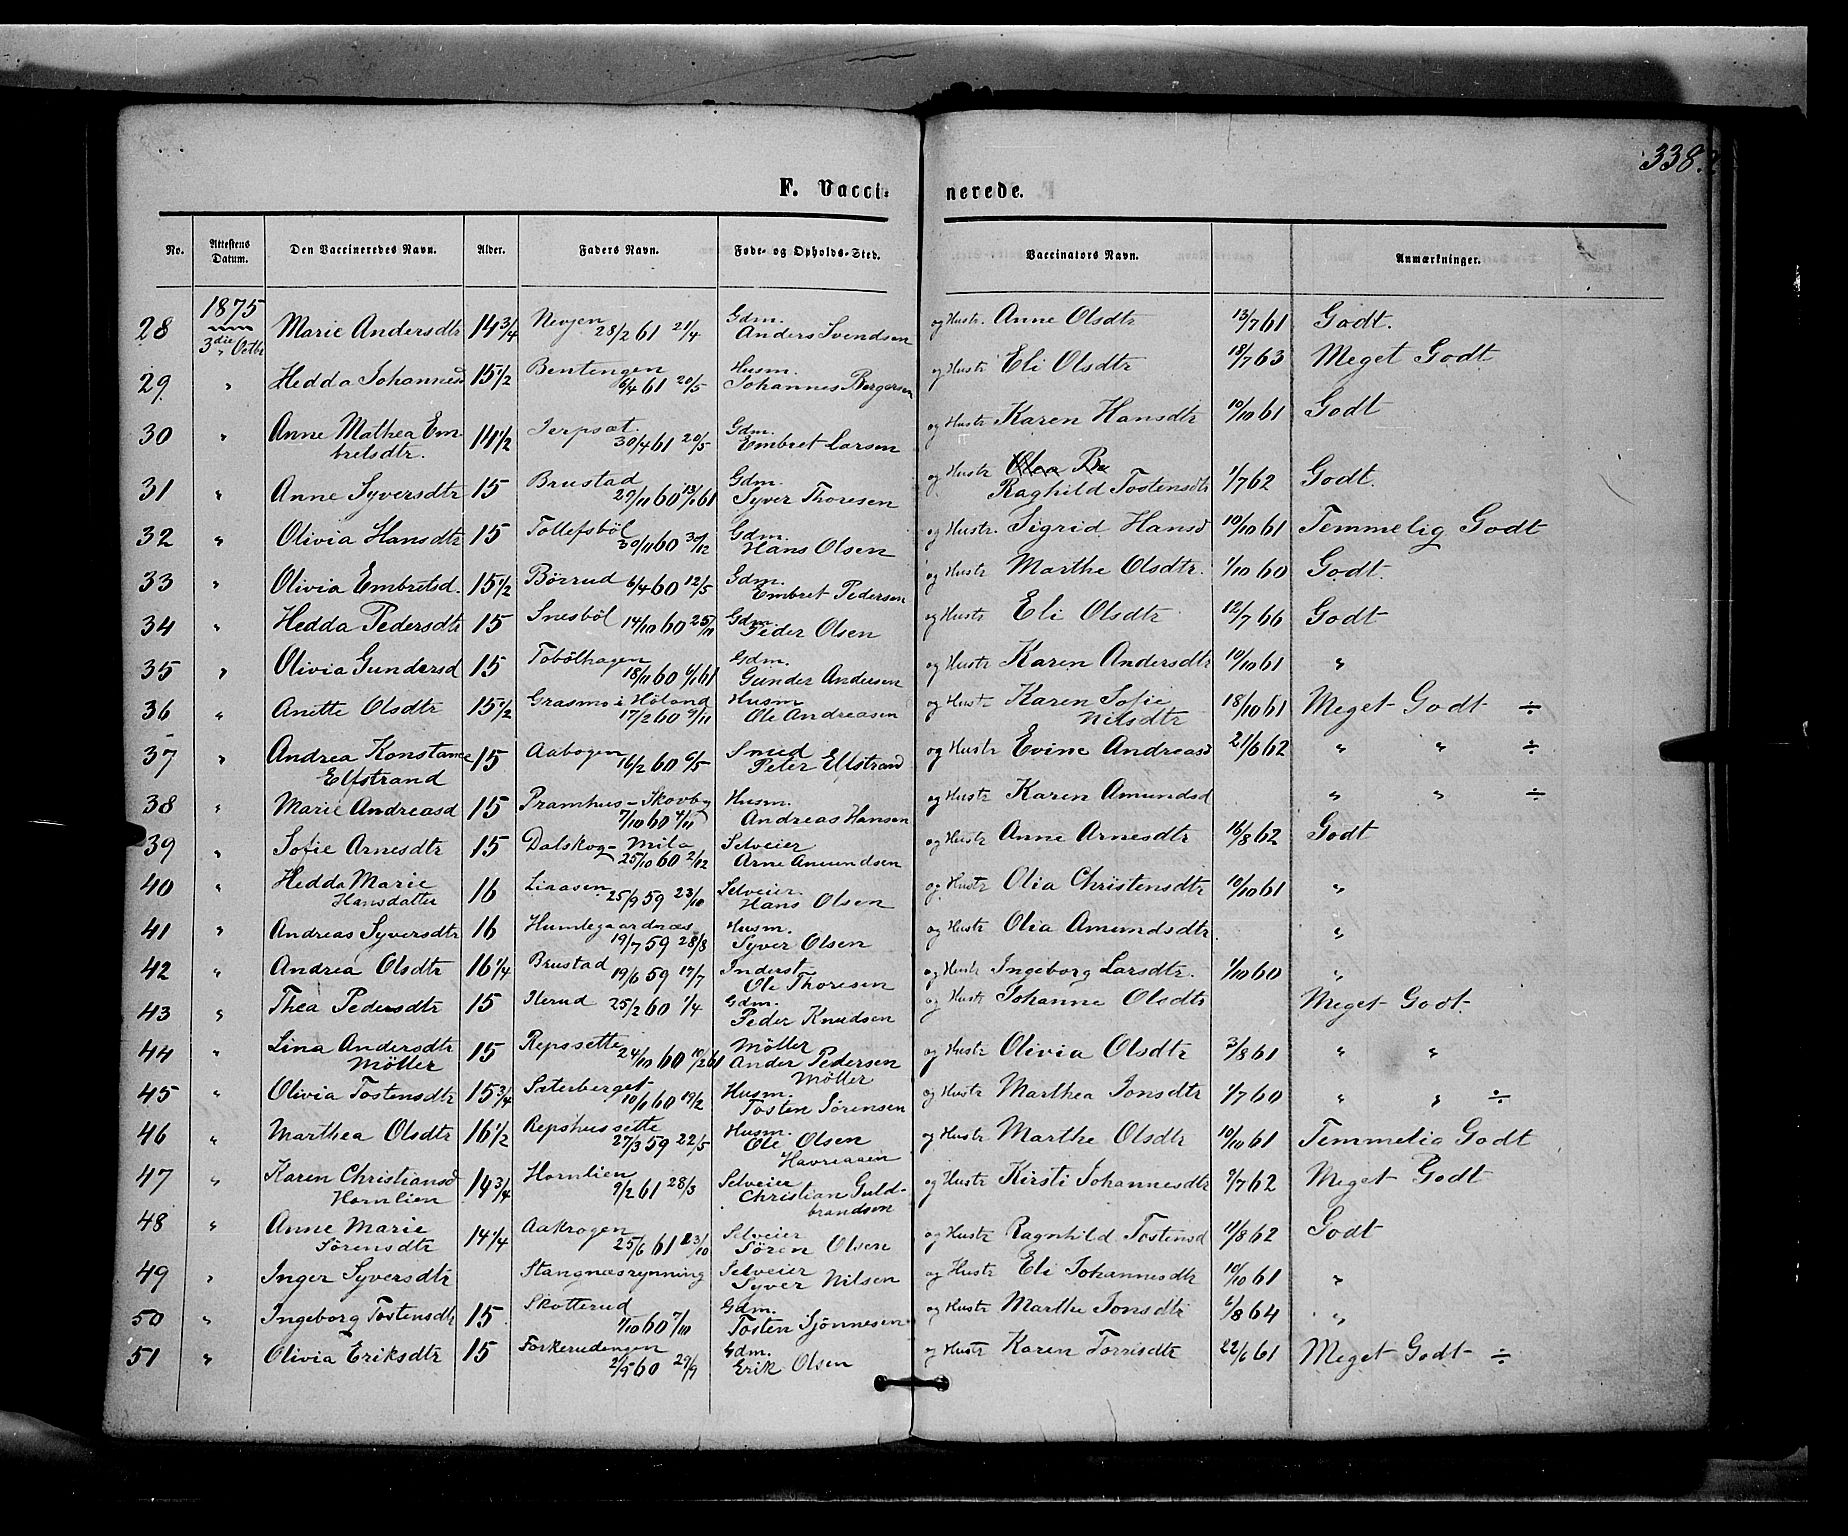 338.
F. Vaccinerede.
No. Attestens Datum. Den Vaccineredes Navn. Alder. Faders Navn. Føde- og Opholds-Sted. Vaccinators Navn. Anmærkninger.
1875
28 3die Octbr Marie Andersdtr 14 3/4 Nevjen 28/2 61 21/4 Gdm. Anders Svendsen og Hustr. Anne Olsdtr 13/7 61 Godt.
29 " Hedda Johannesd 15 1/2 Bentengen 6/4 61 20/5 Husm. Johannes Bergersen og Hustr Eli Olsdtr 18/7 63 Meget Godt
30 " Anne Mathea Em- 14 1/2 Jerpsæt. 30/4 61 20/5 Gdm. Embret Larsen og Hustr Karen Hansdtr 10/10 61 Godt
bretsdtr.
31 " Anne Syversdtr 15 Brustad 29/11 60 13/1 61 Gdm. Syver Thoresen og Hustr Raghild Tostensdtr 1/7 62 Godt.
32 " Olivia Hansdtr 15 Tollefsböl 30/11 60 30/12 Gdm. Hans Olsen og Hustr. Sigrid Hansd 10/10 61 Temmelig Godt
33 " Olivia Embretsd. 15 1/2 Börrud 6/4 60 12/5 Gdm. Embret Pedersen og Hustr Marthe Olsdtr. 1/10 60 Godt.
34 " Hedda Pedersdtr 15 Snesböl 14/10 60 25/11 Gdm. Peder Olsen og Hustr Eli Olsdtr 12/7 66 Godt
35 " Olivia Gundersd 15 Tobölhagen 18/11 60 6/1 61 Gdm. Gunder Andersen og Hustr Karen Andersdtr 10/10 61 "
36 " Anette Olsdtr 15 1/2 Grasmo i Höland 17/2 60 9/11 Husm Ole Andreasen og Hustr Karen Sofie 18/10 61 Meget Godt ÷
Nilsdtr
37 " Andrea Konstance 15 Aabogen 16/2 60 6/5 Smed Peter Elfstrand og Hustr Evine Andreasd 21/6 62 " " ÷
Elfstrand
38 " Marie Andreasd 15 Pramhus-Skovbg 7/10 60 4/11 Husm. Andreas Hansen og Hustr Karen Amundsd " " ÷
39 " Sofie Arnesdtr 15 Dalskog-Mila 25/10 60 2/12 Selveier Arne Amundsen og Hustr Anne Arnesdtr 16/8 62 Godt
40 " Hedda Marie 16 Liaasen 25/9 59 23/10 Selveier. Hans Olsen og Hustr Olia Christensdtr 10/10 61 "
Hansdatter
41 " Andreas Syversdtr 16 Humlegaardnæs 19/7 59 28/8 Husm. Syver Olsen og Hustr Olia Amundsdtr. "
42 " Andrea Olsdtr 16 1/4 Brustad 19/6 59 17/7 Inderst Ole Thoresen og Hustr Ingeborg Larsdtr. 1/10 60 "
43 " Thea Pedersdtr 15 Ilerud 25/2 60 1/4 Gdm. Peder Knudsen og Hustr Johanne Olsdtr Meget Godt.
44 " Lina Andersdtr 15 Repssette 24/10 60 10/2 61 Möller Ander Pedersen og Hustr Olivia Olsdtr 3/8 61 " "
Möller Möller
45 " Olivia Tostensdtr 15 3/4 Sæterberget 10/1 60 19/2 Husm. Tosten Sörensen og Hustr Marthea Jonsdtr 1/7 60 " " ÷
46 " Marthea Olsdtr 16 1/2 Repshussette 27/3 59 22/5 Husm. Ole Olsen og Hustr Marthe Olsdtr 10/10 61 Temmelig Godt
Havreaaen
47 " Karen Christiansd 14 3/4 Hornlien 9/2 61 28/3 Selveier Christian Guld- og Hustr Kirsti Johannesdtr 9/7 62 Meget Godt
Hornlien brandsen
48 " Anne Marie 14 1/4 Aakrogen 25/6 61 13/10 Selveier Sören Olsen og Hustr Ragnhild Tostensd 11/8 62 Godt
Sörensdtr
49 " Inger Syversdtr Stangnæsrynning Selveier Syver Nilsen og Hustr Eli Johannesdtr 10/10 61 "
50 " Ingeborg Tostensdtr 15 Skotterud 7/10 60 7/10 Gdm. Tosten Sjönnesen og Hustr Marthe Jonsdtr 6/8 64 "
51 " Olivia Eriksdtr 15 Forkerudengen 2/9 60 29/9 Gdm. Erik Olsen og Hustr Karen Torrisdtr 22/6 61 Meget Godt ÷